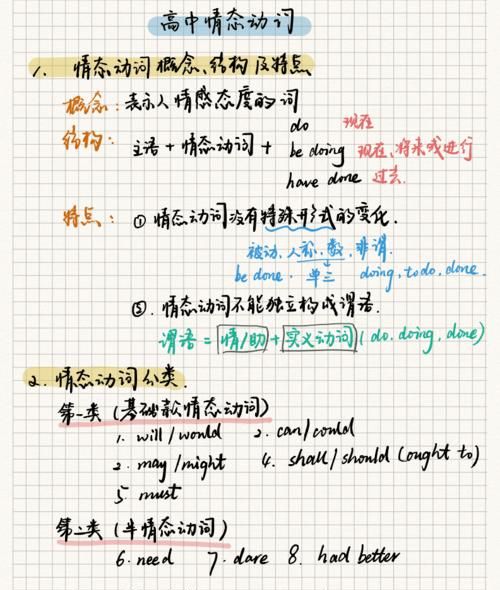 高中情态动词
1. 情态动词概念、结构及特点
概念：表示人情感态度的词
结构：主语 + 情态动词 +
do 现在
be doing 现在、将来或进行
have done 过去.
特点：① 情态动词没有特殊形式的变化.
被动、人称、数、非谓.
be done. 单三 doing, to do, done.
②. 情态动词不能独立构成谓语.
谓语 = 情/助 + 实义动词 (do. doing, done)
2. 情态动词分类.
第一类 (基础款情态动词)
1. will / would 2. can / could
2. may / might 4. shall / should (ought to)
5 must
第二类 (半情态动词)
6. need 7. dare 8. had better